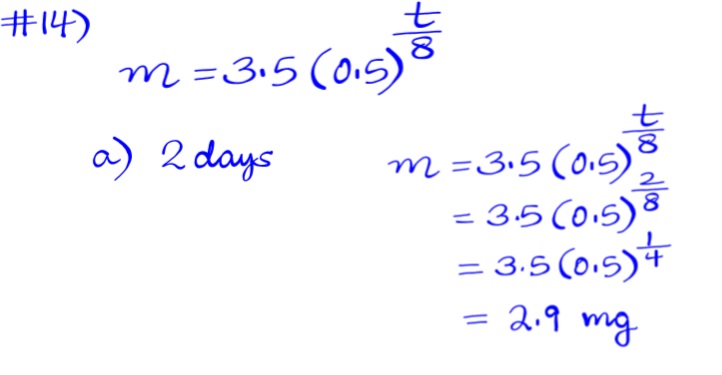 #14)
m = 3.5 (0.5)^(t/8)
a) 2 days
m = 3.5 (0.5)^(t/8)
= 3.5 (0.5)^(2/8)
= 3.5 (0.5)^(1/4)
= 2.9 mg